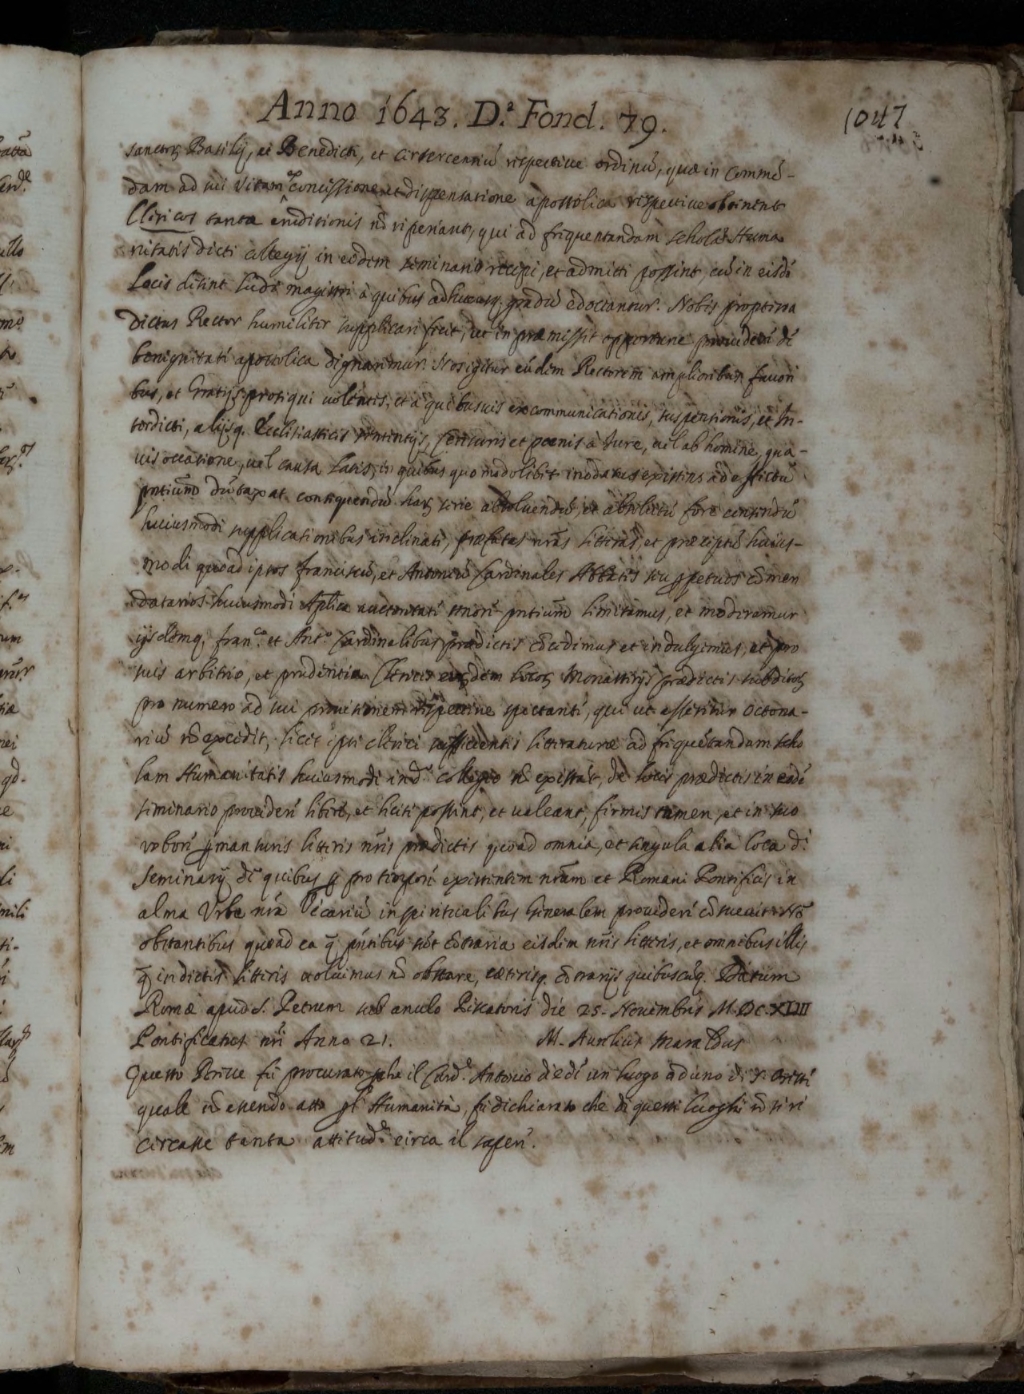 Anno 1643. D.ª Fond. 79.
1047
sanctoȝ Basilij, et Benedicti, et Cisterceniũ respectiue ordinũ, quæ in Commẽ-
dam ad sui vitam ex concessione et dispensatione apostolica respectiue obtinent
Clericos tantæ erũditionis nõ reperiant, qui ad frequentandam scholã Huma
nitatis dicti Collegij in eodem seminario recipi, et admitti possint cũ in eisdẽ
Locis desint ludi magistri à quibus ad gradũ edoceantur. Nobis propterea
dictus Rector humiliter supplicari fecit, ut in præmissis opportune prouidere de
benignitate apostolica dignaremur. Nos igitur eũdem Rectorem amplioribus fauori
bus, et gratijs prosequi uolentes, et à quibusuis excommunicationis, suspensionis, et In-
terdicti, alijsq. Ecclesiasticis sententijs, censuris et pœnis à Iure, uel ab homine, qua-
uis occasione, uel causa latis, in quibus quomodolibet inodatus existens ad effectũ
pñtium dũtaxat consequendũ harȝ serie absoluendũ, et absolutũ fore censendũ
huiusmodi supplicationibus inclinati, præfatas nrãs litteras, et præceptũ huius-
modi quoad ipsos Franciscũ, et Antoniũ Cardinales Abbates seu ppetuos cõmen
datarios huiusmodi Aplica auctoritate tenore pñtium limitamus, et moderamur
ijsdemq; Fran.co et Ant.o Cardinalibus prædictis cõcedimus et indulgemus, ut pro
suis arbitrio, et prudentia Clericis eorũdem locoȝ Monasterijs prædictis subditoȝ
pro numero ad sui prouisionem respectiue spectante, qui ut asseritur octona-
riũ nõ excedit, licet ipsi clerici sufficientis litteraturæ ad frequẽtandam scho
lam Humanitatis huiusmodi in d.º Collegio nõ existãt, de locis prædictis in eodẽ
seminario prouidere libere, et licite possint, et ualeant, firmis tamen, et in suo
robore pmanturis litteris nr̃is prædictis quoad omnia, et singula alia loca d.i
Seminarij de quibus p pro tempore existentem nrũm et Romani Pontificis in
alma Vrbe nrã Vicariũ in spiritualibus Generalem prouideri cõsueuit Nõ
obstantibus quoad ea q̃ pñtibus sũt cõtraria eisdem nr̃is litteris, et omnibus illis
q̃ in dictis litteris uoluimus nõ obstare, cæterisq. cõtrarijs quibuscũq. Datum
Romæ apud S. Petrum sub anulo Piscatoris die 25. Nouembris M.DC.XLIII
Pontificatus nr̃i Anno 21. M. Aurelius Maraldus
Questo Breue fu procurato pche il Card.e Antonio diede un luogo ad uno di
quale nõ essendo atto p l'Humanità, fu dichiarato che in questi luoghi nõ si ri
cercasse tanta attitud.e circa il saper.